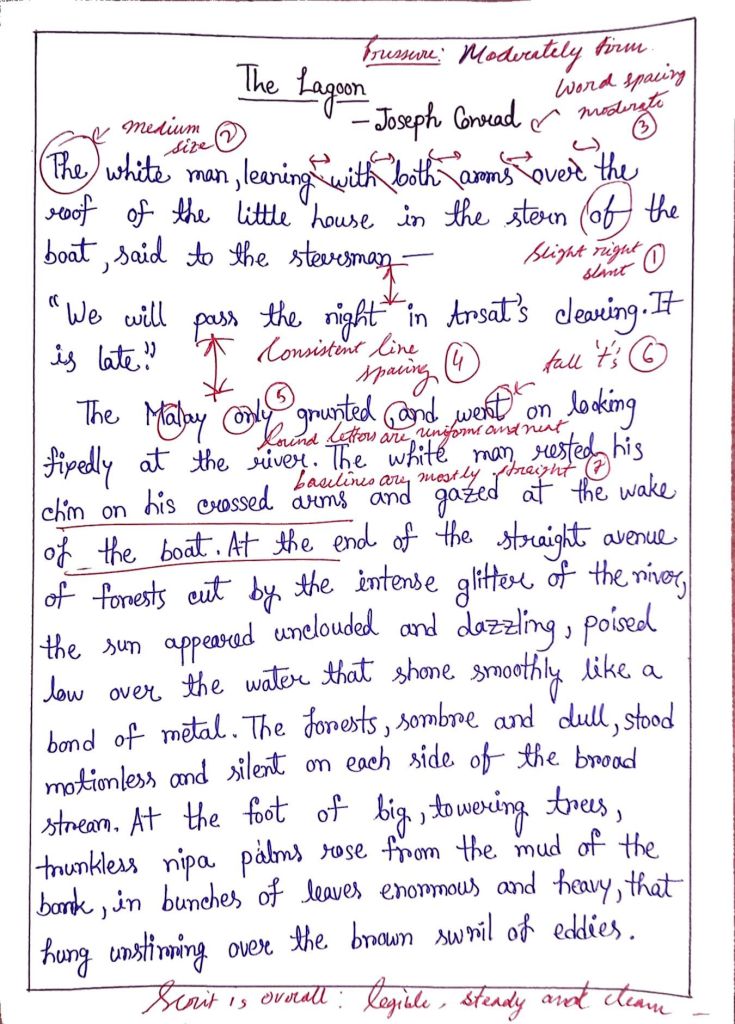 Pressure: Moderately firm.
The Lagoon
word spacing
moderate
③
– Joseph Conrad
medium
size ②
The white man, leaning with both arms over the
roof of the little house in the stern of the
boat, said to the steersman —
slight right
slant ①
"We will pass the night in Arsat's clearing. It
is late."
Consistent line
spacing ④
tall 't's ⑥
⑤
The Malay only grunted, and went on looking
round letters are uniform and neat
fixedly at the river. The white man rested his
baselines are mostly straight ⑦
chin on his crossed arms and gazed at the wake
of the boat. At the end of the straight avenue
of forests cut by the intense glitter of the river,
the sun appeared unclouded and dazzling, poised
low over the water that shone smoothly like a
band of metal. The forests, sombre and dull, stood
motionless and silent on each side of the broad
stream. At the foot of big, towering trees,
trunkless nipa palms rose from the mud of the
bank, in bunches of leaves enormous and heavy, that
hung unstirring over the brown swril of eddies.
Script is overall: legible, steady and clean –